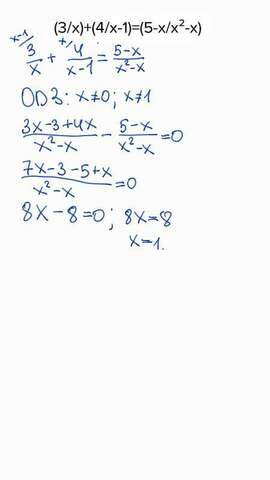 (3/x)+(4/x-1)=(5-x/x²-x)
x-1/ 3/x + x/ 4/x-1 = 5-x/x²-x
ОДЗ: x≠0; x≠1
3x-3+4x/x²-x - 5-x/x²-x =0
7x-3-5+x/x²-x =0
8x-8=0; 8x=8
x=1.